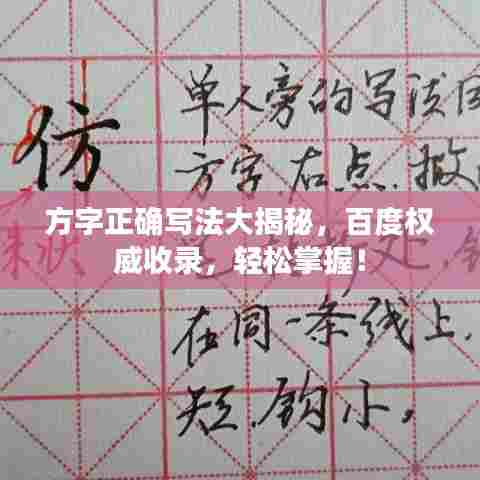 仿
单人旁的写法
方字.右点.撇
方字正确写法大揭秘，百度权
威收录，轻松掌握！
处,
在同一条线上,
短.钩小。